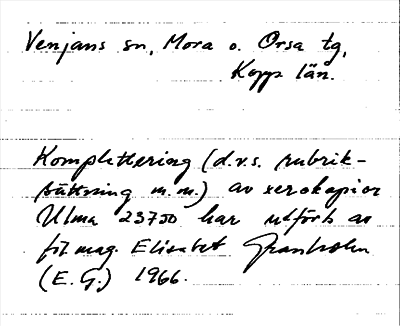 Venjans sn, Mora o. Orsa tg,
Kopp län.
Komplettering (d.v.s. rubrik-
sättning m.m.) av xerokopior
Ulma 23750 har utförts av
fil mag. Elisabet Granholm
(E. G.) 1966.